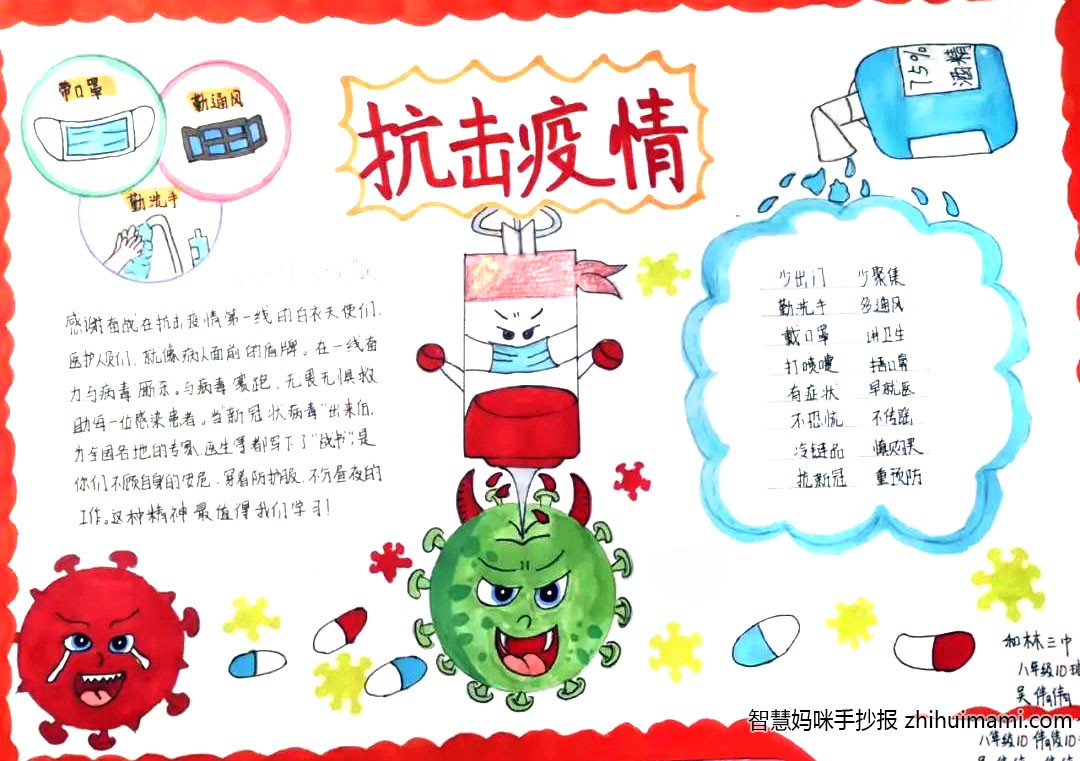 抗击疫情
带口罩
勤通风
勤洗手
75%
酒精
感谢奋战在抗击疫情第一线的白衣天使们.
医护人员们,就像病人面前的盾牌。在一线奋
力与病毒厮杀。与病毒赛跑,无畏无惧救
助每一位感染患者。当"新冠状病毒"出来后,
为全国各地的专家医生等都写下了"战书",是
你们不顾自身的安危,穿着防护服,不分昼夜的
工作。这种精神最值得我们学习!
少出门 少聚集
勤洗手 多通风
戴口罩 讲卫生
打喷嚏 捂口鼻
有症状 早就医
不恐慌 不传谣
冷链品 慎购买
抗新冠 重预防
和林三中
八年级10班
吴倩倩
智慧妈咪手抄报 zhihuimami.com
八年级10